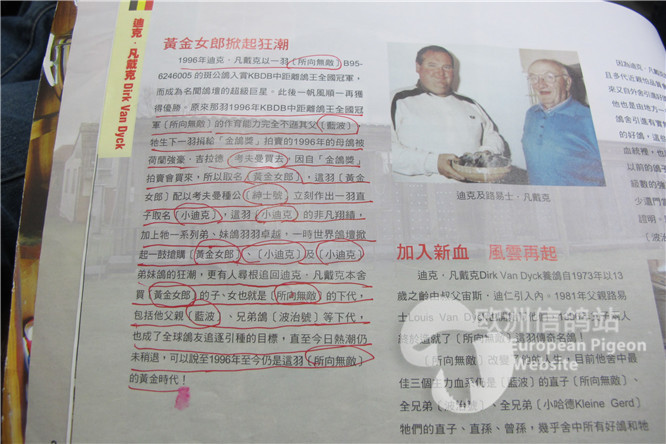 迪克．凡戴克 Dirk Van Dyck
黃金女郎掀起狂潮
1996年迪克．凡戴克以一羽〔所向無敵〕B95-
6246005 的斑公鴿入賞KBDB中距離鴿王全國冠軍，
而成為名聞鴿壇的超級巨星。此後一帆風順一再獲
得優勝。原來那羽1996年KBDB中距離鴿王全國冠
軍〔所向無敵〕的作育能力完全不遜其父〔藍波〕。
牠生下一羽捐給「金鴿獎」拍賣的1996年的母鴿被
荷蘭強豪．吉拉德〔考夫曼買去〕，因自「金鴿獎」
拍賣會買來，所以取名〔黃金女郎〕，這羽〔黃金
女郎〕配以考夫曼種公〔紳士號〕立刻作出一羽直
子取名〔小迪克〕，這羽〔小迪克〕的非凡翔績，
加上牠一系列弟、妹鴿羽羽卓越，一時世界鴿壇掀
起一股搶購〔黃金女郎〕、〔小迪克〕及〔小迪克〕
弟妹鴿的狂潮，更有人尋根追回迪克．凡戴克本舍
買〔黃金女郎〕的子、女也就是〔所向無敵〕的下代，
包括他父親〔藍波〕、兄弟鴿〔波治號〕等下代，
也成了全球鴿友追逐引種的目標，直至今日熱潮仍
未稍退，可以說至1996年至今仍是這羽〔所向無敵〕
的黃金時代！
迪克及路易士．凡戴克
加入新血　風雲再起
迪克．凡戴克Dirk Van Dyck養鴿自1973年以13
歲之齡由叔父宙斯．迪仁引入內，1981年父親路易
士Louis Van Dyck
終於造就了〔所向無敵〕這羽傳奇名鴿！
〔所向無敵〕改變了他的人生，目前他舍中最
佳三個主力血系仍是〔藍波〕的直子〔所向無敵〕、
全兄弟〔波治號〕、全兄弟〔小哈德Kleine Gerd〕
牠們的直子、直孫、曾孫，幾乎舍中所有好鴿和牠
因為迪克．凡
且多代近親怕品質會
來又自外舍引進好
他也是由地方一
鴿舍引進有實
的好鴿，這些
血統裡。也
以前的鴿子
總數的強
少還鬥當
證明，
〔波治
欧洲信鸽站
European Pigeon
Website